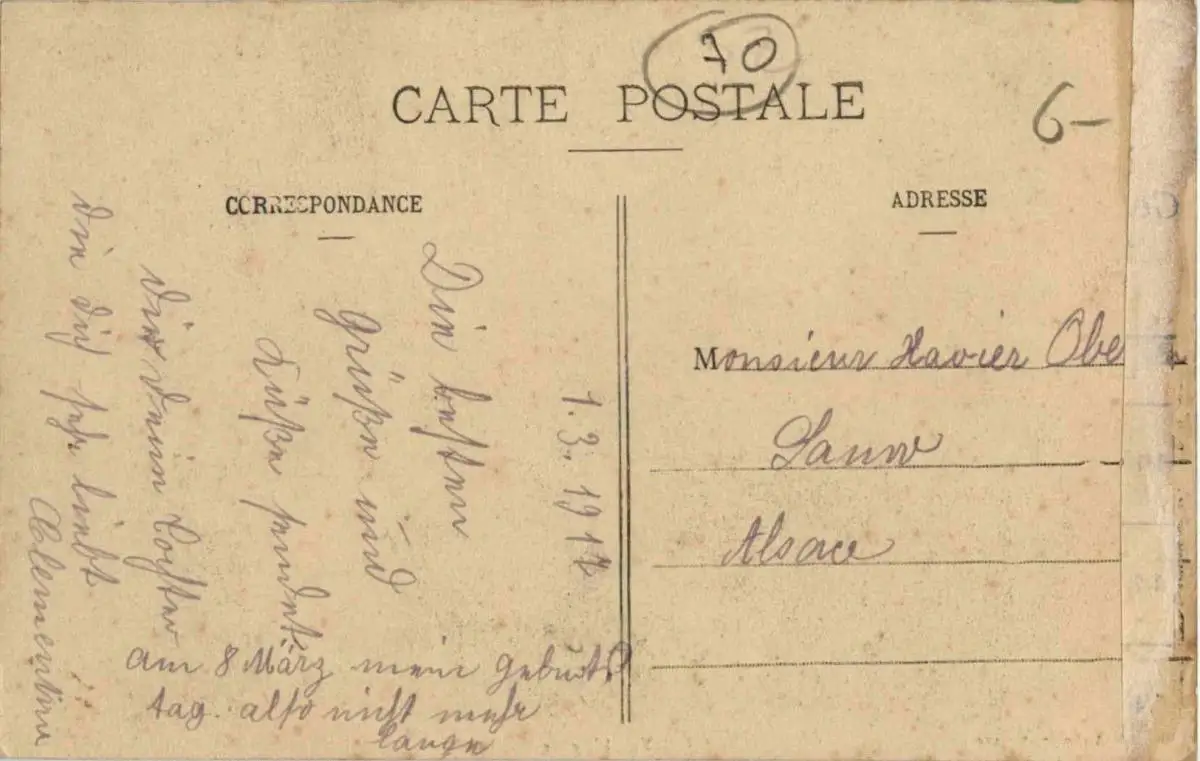 70
CARTE POSTALE
6-
CORRESPONDANCE
1.3.1917
Die besten
Grüße und
Küße sendet
dir deine Tochter
die dich sehr liebt
Clementine
am 8 März mein Geburts
tag. also nicht mehr
lange
ADRESSE
Monsieur Xavier Obe
Lauw
Alsace